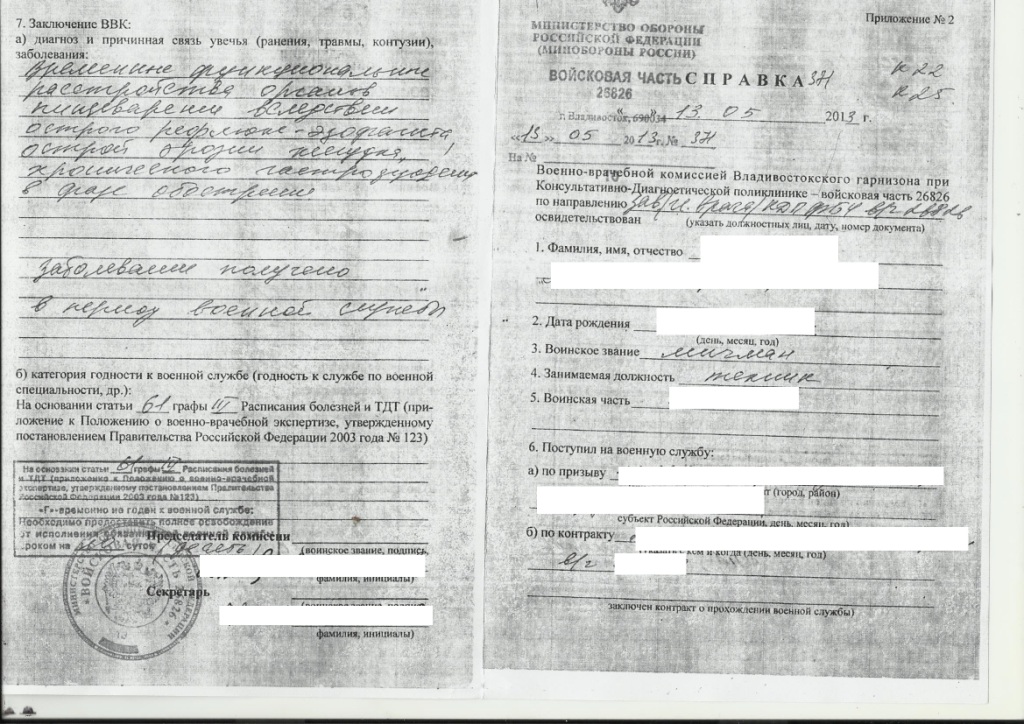 7. Заключение ВВК:
а) диагноз и причинная связь увечья (ранения, травмы, контузии),
заболевания:
временные функциональные
расстройства органов
пищеварения вследствие
острого рефлюкс-эзофагита,
острой эрозии желудка,
хронического гастродуоденита
в фазе обострения
заболевание получено
в период военной службы
б) категория годности к военной службе (годность к службе по военной
специальности, др.):
На основании статьи 61 графы III Расписания болезней и ТДТ (при-
ложение к Положению о военно-врачебной экспертизе, утвержденному
постановлением Правительства Российской Федерации 2003 года № 123)
На основании статьи 61 графы III Расписания болезней
и ТДТ (приложение к Положению о военно-врачебной
экспертизе, утвержденному постановлением Правительства
Российской Федерации 2003 года №123)
«Г»-временно не годен к военной службе:
Необходимо предоставить полное освобождение
от исполнения обязанностей военной службы
сроком на суток (десять)
Председатель комиссии
(воинское звание, подпись,
фамилия, инициалы)
Секретарь
фамилия, инициалы)
ВОЙСКОВАЯ ЧАСТЬ 26826
Приложение № 2
МИНИСТЕРСТВО ОБОРОНЫ
РОССИЙСКОЙ ФЕДЕРАЦИИ
(МИНОБОРОНЫ РОССИИ)
ВОЙСКОВАЯ ЧАСТЬ
26826
СПРАВКА 371
к 22
к 25.
г. Владивосток, 690034
« » 13. 05 2013 г.
«13» 05 2013 г. № 371
На №
Военно-врачебной комиссией Владивостокского гарнизона при
Консультативно-Диагностической поликлинике – войсковая часть 26826
по направлению
(указать должностных лиц, дату, номер документа)
освидетельствован
1. Фамилия, имя, отчество
2. Дата рождения
(день, месяц, год)
3. Воинское звание мичман
4. Занимаемая должность техник
5. Воинская часть
6. Поступил на военную службу:
а) по призыву
(город, район)
субъект Российской Федерации, день, месяц, год)
б) по контракту
с кем и когда (день, месяц, год)
в/ч
заключен контракт о прохождении военной службы)